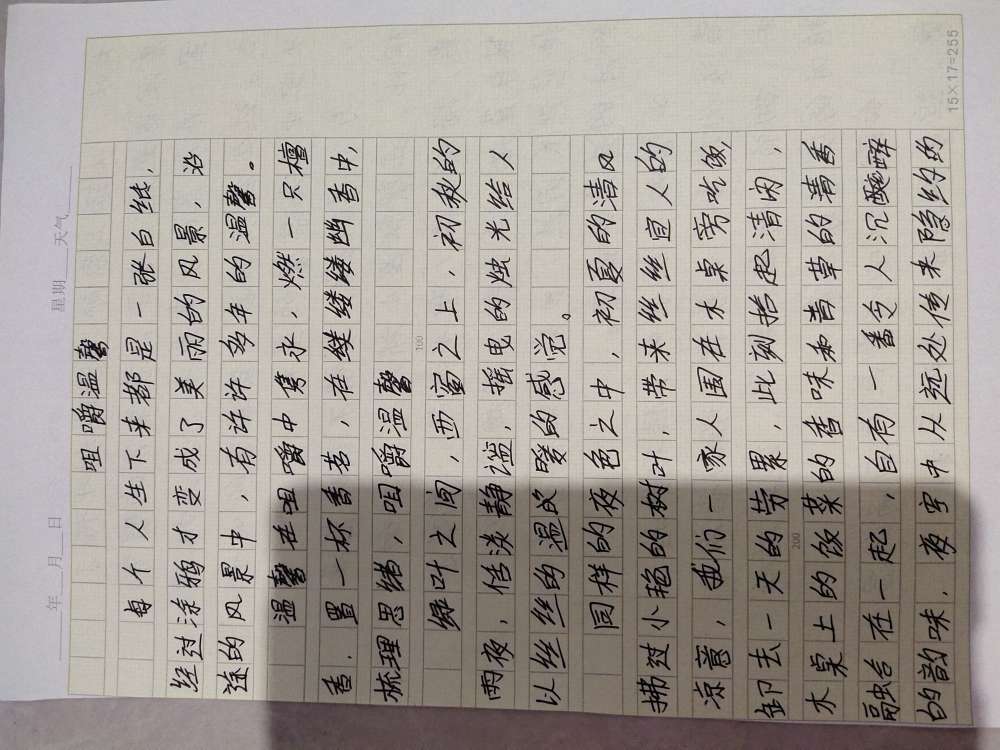 年 月 日 星期 天气
咀嚼温馨
每个人生下来都是一张白纸，
经过涂鸦才变成了美丽的风景，沿
途的风景中，有许许多年的温馨。
温馨在咀嚼中隽永，燃一只檀
香，置一杯香茗，在缕缕缕幽香中，
梳理思绪，咀嚼温馨
100
绿叶之间，西窗之上，初秋的
雨夜，恬淡静谧，摇电的烛光给人
以丝丝丝的温的暖的感觉。
同样的夜色之中，初夏的清风
拂过小艳的树叶，带来丝丝丝宜人的
凉意，我们一家人围在木桌旁吃饭，
卸去一天的劳累，此刻拾起清闲，
200
木桌上的饭菜的香味和青草的清香
融合在一起，自有一番令人沉醺醉
的韵味，夜空中从远处传来隐约的
15×17=255